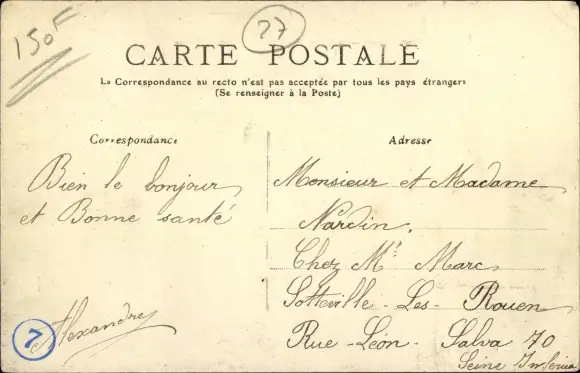 150F
27
CARTE POSTALE
La Correspondance au recto n'est pas acceptée par tous les pays étrangers
(Se renseigner à la Poste)
Correspondance
Bien le bonjour
et Bonne santé
Alexandre
7
Adresse
Monsieur et Madame
Nardin.
Chez Mr Marc
Sotteville-Les-Rouen
Rue-Léon-Salva 70
Seine Inférieure